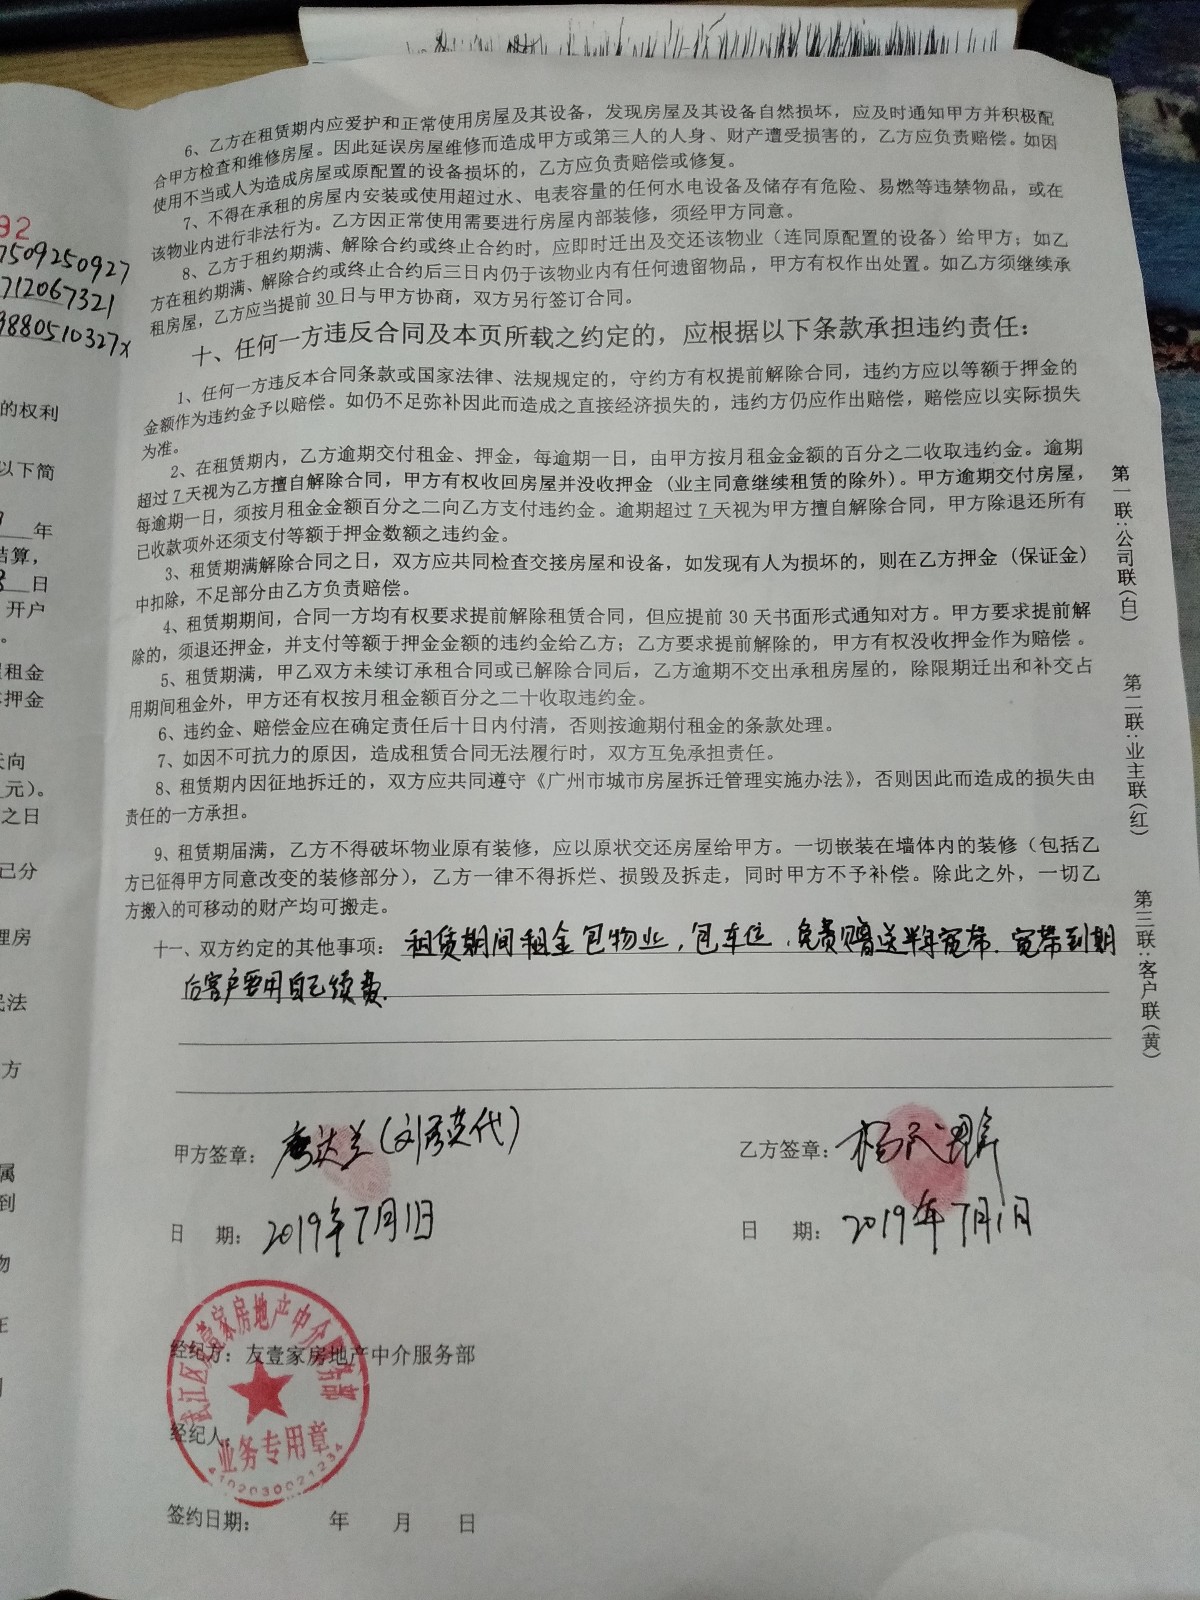 92
7509250927
712067321
9880510327x
的权利
以下简
年
结算，
8 日
开户
租金
押金
天向
元）。
之日
己分
理房
民法
方
属
到
物
6、乙方在租赁期内应爱护和正常使用房屋及其设备，发现房屋及其设备自然损坏，应及时通知甲方并积极配
合甲方检查和维修房屋。因此延误房屋维修而造成甲方或第三人的人身、财产遭受损害的，乙方应负责赔偿。如因
使用不当或人为造成房屋或原配置的设备损坏的，乙方应负责赔偿或修复。
7、不得在承租的房屋内安装或使用超过水、电表容量的任何水电设备及储存有危险、易燃等违禁物品，或在
该物业内进行非法行为。乙方因正常使用需要进行房屋内部装修，须经甲方同意。
8、乙方于租约期满、解除合约或终止合约时，应即时迁出及交还该物业（连同原配置的设备）给甲方；如乙
方在租约期满、解除合约或终止合约后三日内仍于该物业内有任何遗留物品，甲方有权作出处置。如乙方须继续承
租房屋，乙方应当提前 30 日与甲方协商，双方另行签订合同。
十、任何一方违反合同及本页所载之约定的，应根据以下条款承担违约责任：
1、任何一方违反本合同条款或国家法律、法规规定的，守约方有权提前解除合同，违约方应以等额于押金的
金额作为违约金予以赔偿。如仍不足弥补因此而造成之直接经济损失的，违约方仍应作出赔偿，赔偿应以实际损失
为准。
2、在租赁期内，乙方逾期交付租金、押金，每逾期一日，由甲方按月租金金额的百分之二收取违约金。逾期
超过 7 天视为乙方擅自解除合同，甲方有权收回房屋并没收押金（业主同意继续租赁的除外）。甲方逾期交付房屋，
每逾期一日，须按月租金金额百分之二向乙方支付违约金。逾期超过 7 天视为甲方擅自解除合同，甲方除退还所有
已收款项外还须支付等额于押金数额之违约金。
3、租赁期满解除合同之日，双方应共同检查交接房屋和设备，如发现有人为损坏的，则在乙方押金（保证金）
中扣除，不足部分由乙方负责赔偿。
4、租赁期期间，合同一方均有权要求提前解除租赁合同，但应提前 30 天书面形式通知对方。甲方要求提前解
除的，须退还押金，并支付等额于押金金额的违约金给乙方；乙方要求提前解除的，甲方有权没收押金作为赔偿。
5、租赁期满，甲乙双方未续订承租合同或已解除合同后，乙方逾期不交出承租房屋的，除限期迁出和补交占
用期间租金外，甲方还有权按月租金额百分之二十收取违约金。
6、违约金、赔偿金应在确定责任后十日内付清，否则按逾期付租金的条款处理。
7、如因不可抗力的原因，造成租赁合同无法履行时，双方互免承担责任。
8、租赁期内因征地拆迁的，双方应共同遵守《广州市城市房屋拆迁管理实施办法》，否则因此而造成的损失由
责任的一方承担。
9、租赁期届满，乙方不得破坏物业原有装修，应以原状交还房屋给甲方。一切嵌装在墙体内的装修（包括乙
方已征得甲方同意改变的装修部分），乙方一律不得拆烂、损毁及拆走，同时甲方不予补偿。除此之外，一切乙
方搬入的可移动的财产均可搬走。
十一、双方约定的其他事项：租赁期间租金包物业，包车位，免费赠送半年宽带．宽带到期
后客户要用自己续费．
第一联：公司联（白） 第二联：业主联（红） 第三联：客户联（黄）
甲方签章： 乙方签章：
日 期：2019年7月1日 日 期：2019年7月1日
武江区友壹家房地产中介服务部
经纪方：友壹家房地产中介服务部
经纪人
业务专用章
4102030021234
签约日期： 年 月 日